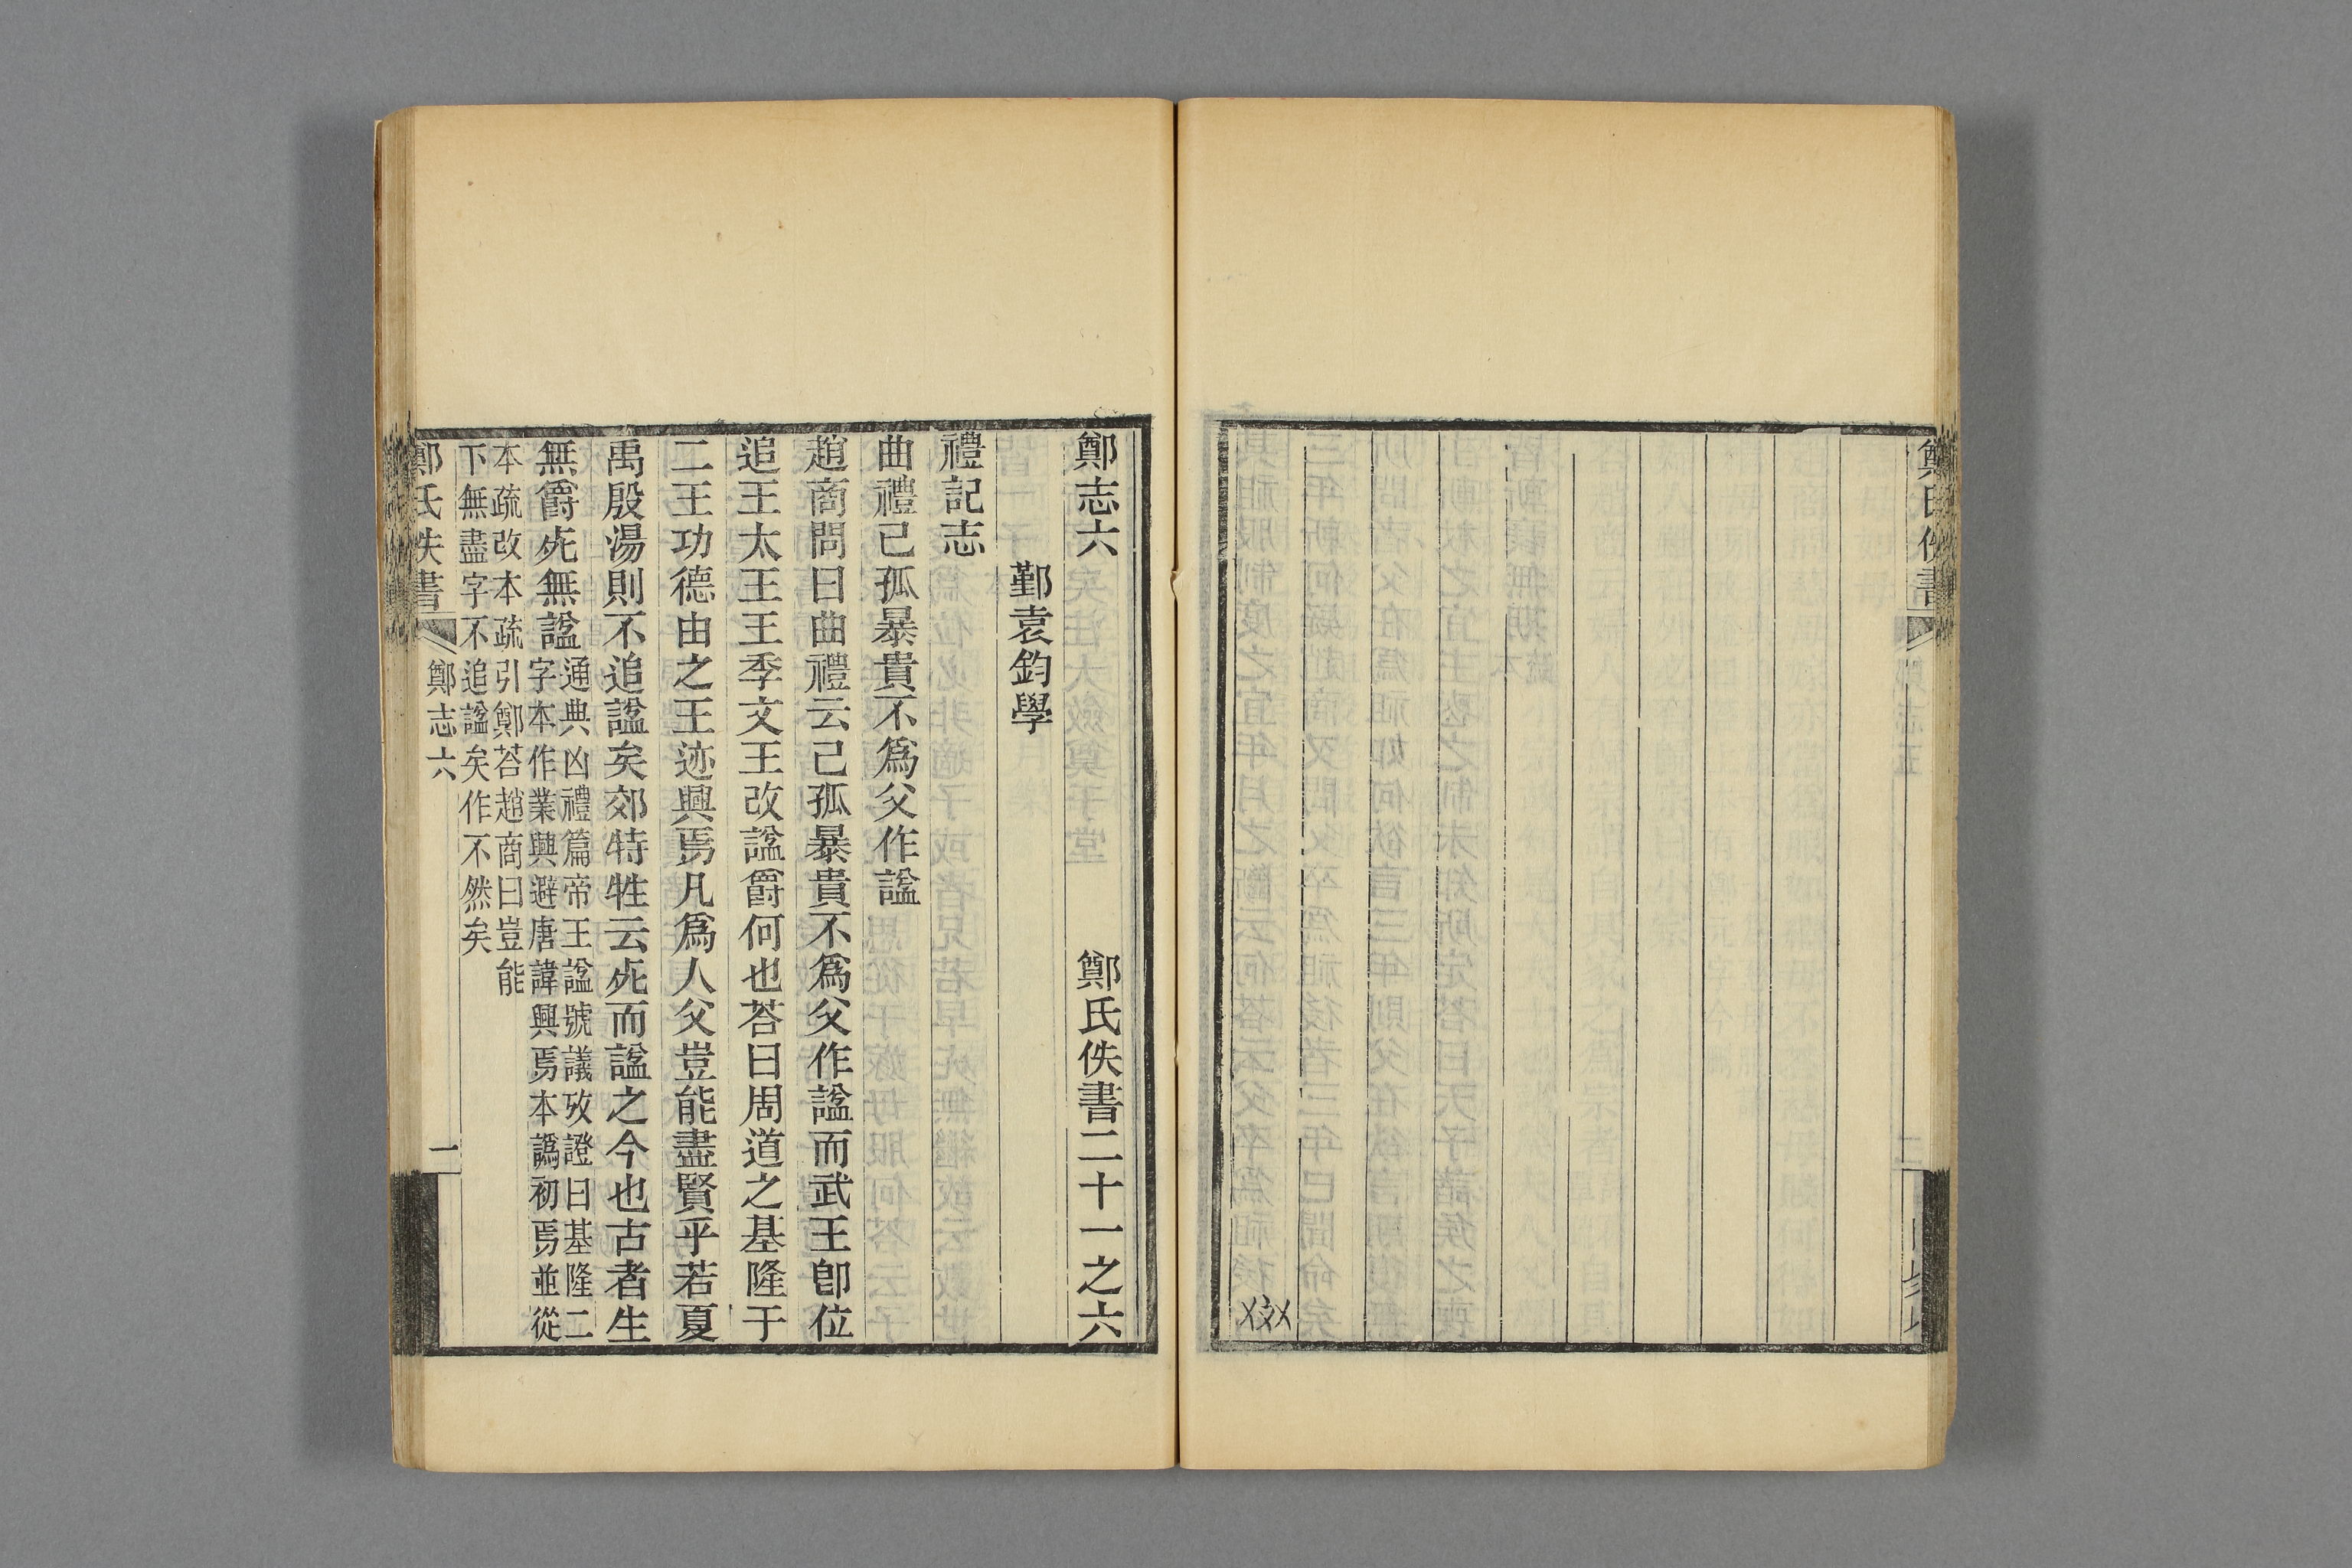 鄭氏佚書
鄭志六
鄭氏佚書二十一之六
鄞袁鈞學
禮記志
曲禮己孤暴貴不爲父作諡
趙商問曰曲禮云己孤暴貴不爲父作諡而武王卽位
追王太王王季文王改諡爵何也荅曰周道之基隆于
二王功德由之王迹興焉凡爲人父豈能盡賢乎若夏
禹殷湯則不追諡矣郊特牲云死而諡之今也古者生
無爵死無諡
通典凶禮篇帝王諡號議攷證曰基隆二
字本作業興避唐諱興焉本譌初焉並從
本疏改本疏引鄭荅趙商曰豈能
下無盡字不追諡矣作不然矣
鄭氏佚書
鄭志六
一